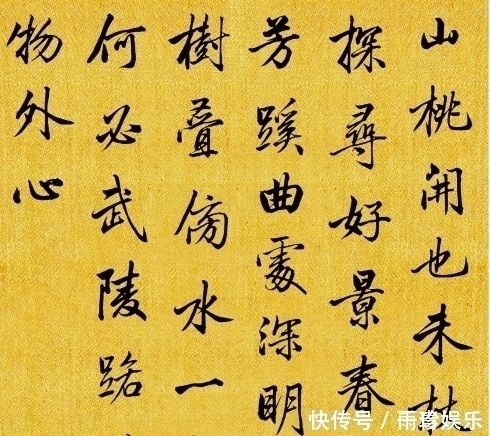 山桃開也未
探尋好景春
芳蹊曲處深明
樹疊傍水一
何必武陵路
物外心
快传号 /